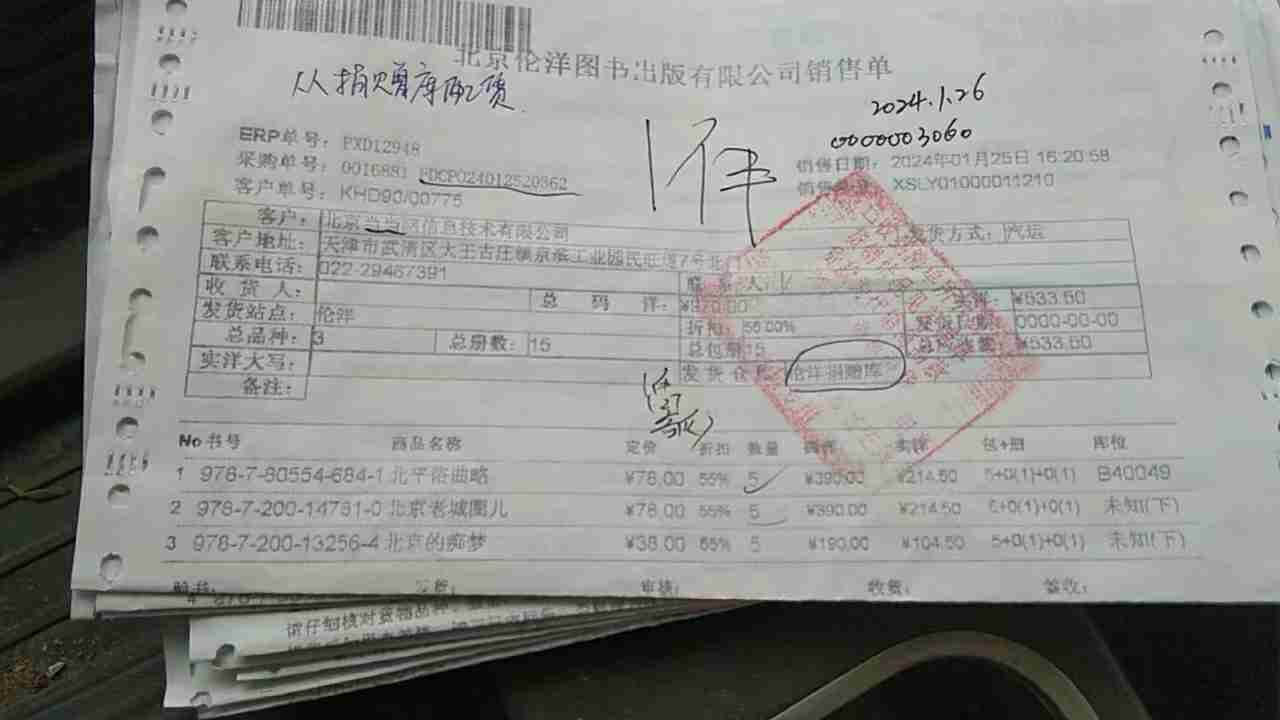 北京伦洋图书出版有限公司销售单
从捐赠库配货
2024.1.26
0000003060
1件
ERP单号: PXD12948
采购单号: 0016881
销售日期: 2024年01月25日 16:20:58
客户单号: KHD90/00775
XSLY01000011210
客户: 北京当当网信息技术有限公司
发货方式: 汽运
客户地址: 天津市武清区大王古庄镇京滨工业园民旺道7号
联系电话: 022-29467391
联系人:
收货人:
总码洋: ¥970.00
实洋: ¥533.50
发货站点: 伦洋
折扣: 55.00%
发货日期: 0000-00-00
总品种: 3
总册数: 15
¥533.50
实洋大写:
伦洋捐赠库
备注:
No 书号 商品名称 定价 折扣 数量 码洋 实洋 包+册 库位
1 978-7-80554-684-1 北平俗曲略 ¥78.00 55% 5 ¥390.00 ¥214.50 5+0(1)+0(1) B40049
2 978-7-200-14781-0 北京老城圈儿 ¥78.00 55% 5 ¥390.00 ¥214.50 5+0(1)+0(1) 未知(下)
3 978-7-200-13256-4 北京的痴梦 ¥38.00 55% 5 ¥190.00 ¥104.50 5+0(1)+0(1) 未知(下)
审核: 收货: 签收:
请仔细核对货物品种